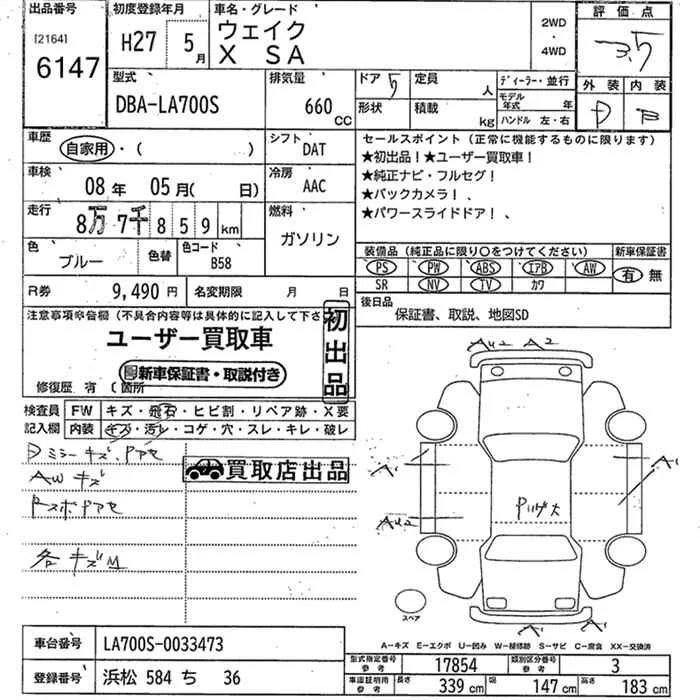 出品番号
[2164]
6147
初度登録年月
H27 5月
車名・グレード
ウェイク
X SA
2WD
・
4WD
評価点
3.5
外装 内装
D B
型式
DBA-LA700S
排気量
660 cc
ドア 5
形状
定員 人
積載 kg
ディーラー・並行
モデル年式 年
ハンドル 左・右
車歴
自家用・( )
シフト
DAT
車検
08年 05月( 日)
冷房
AAC
走行
8万7千859km
燃料
ガソリン
色
ブルー
色替
色コード
B58
R券 9,490円
名変期限 月 日
セールスポイント(正常に機能するものに限ります)
★初出品!★ユーザー買取車!
★純正ナビ・フルセグ!
★バックカメラ!、
★パワースライドドア!、
装備品(純正品に限り○をつけてください)
PS PW ABS エアB AW
SR NV TV カワ
新車保証書
有 無
後日品
保証書、取説、地図SD
注意事項申告欄(不具合内容等は具体的に記入して下さ
ユーザー買取車
新車保証書・取説付き
初出品
修復歴 有 (箇所
検査員記入欄
FW キズ・飛石・ヒビ割・リペア跡・X要
内装 キズ・汚レ・コゲ・穴・スレ・キレ・破レ
Dミラーキズ、Pアセ
AWキズ
Pスポアセ
各キズM
買取店出品
AU2 A2
A1
A1
AU2
Pハゲ大
A1 A1
スペア
A-キズ E-エクボ U-凹み W-補修跡 S-サビ C-腐食 XX-交換済
車台番号 LA700S-0033473
登録番号 浜松 584 ち 36
型式指定番号 参考 17854
類別区分番号 参考 3
車庫証明用 参考 長さ 339 cm 幅 147 cm 高さ 183 cm